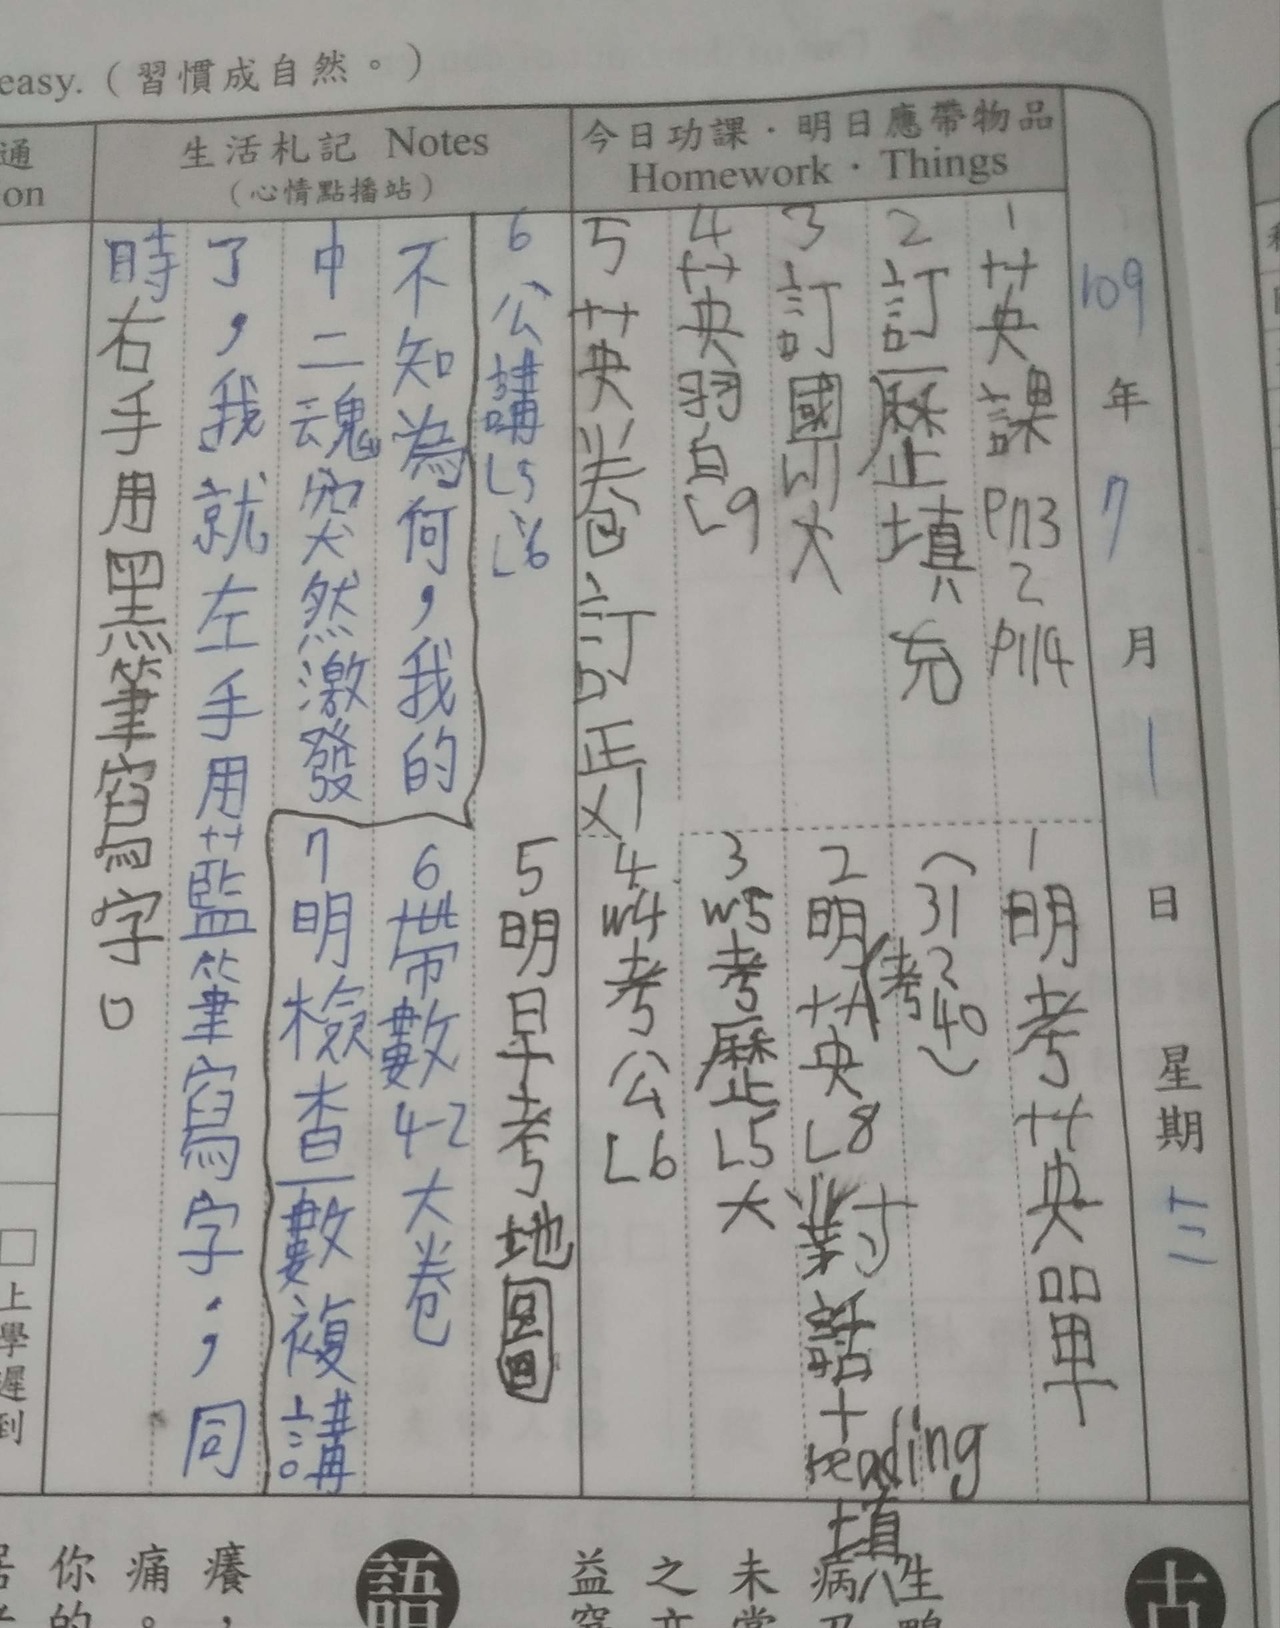 easy.（習慣成自然。）
今日功課．明日應帶物品
Homework．Things
生活札記 Notes
（心情點播站）
通
on
109年7月1日星期三
1英課P113~P114
2訂歷填充
3訂國
4英習自L9
5英卷訂正
6公講L5 L6
1明考英單
（31~40）
2明（考）英L8對話+reading填
3W5考歷L5大
4W4考公L6
5明早考地圖
6帶數4-2大卷
7明檢查數複講
不知為何，我的
中二魂突然激發
了，我就左手用藍筆寫字；，同
時右手用黑筆寫字。
□上學遲到
古
生
病
未
之
益
語
癢，
痛。
你的